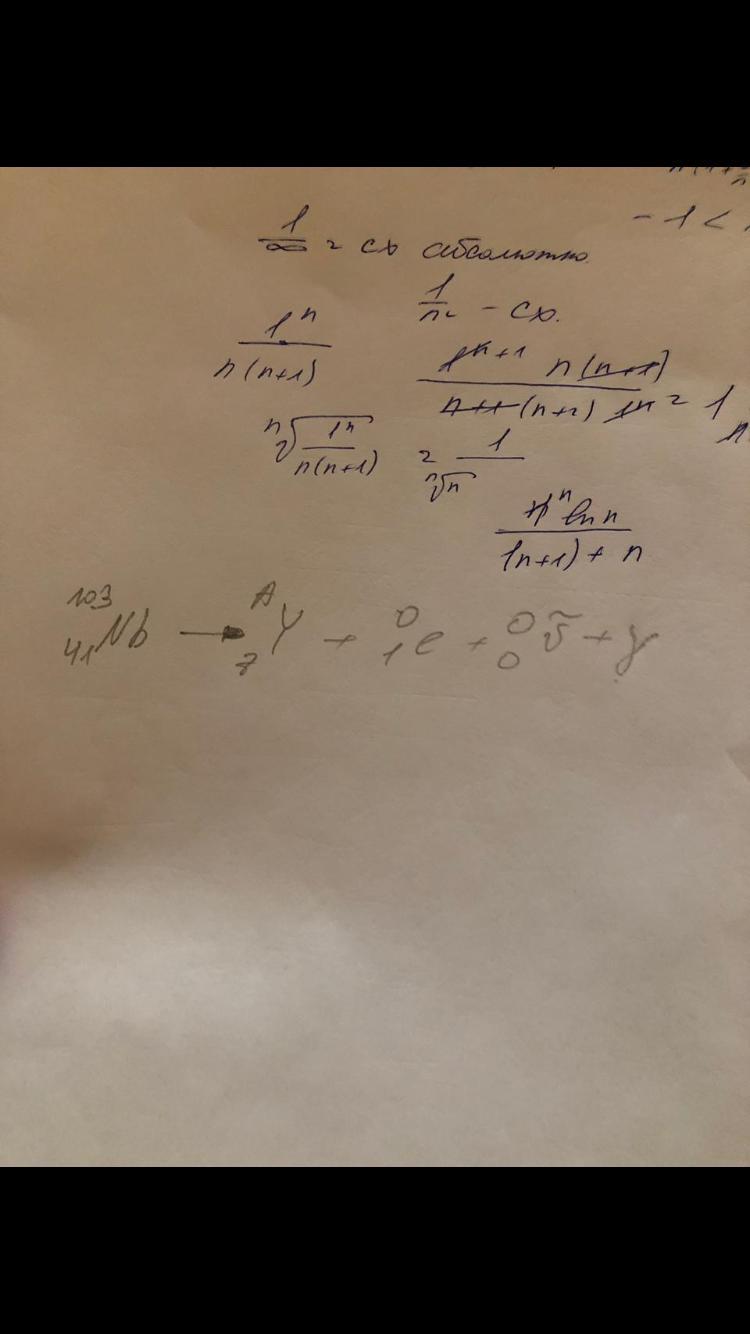 - 1 <
1/∞ = сх абсолютно.
1/n² - сх.
1ⁿ/n(n+1)
1ⁿ⁺¹ n(n+1)/n+1(n+2) 1ⁿ = 1
ⁿ√1ⁿ/n(n+1) = 1/ⁿ√n
ⁿ ln n/(n+1) + n
¹⁰³₄₁Nb → ᴬ_z Y + ⁰₁e + ⁰₀ṽ + γ